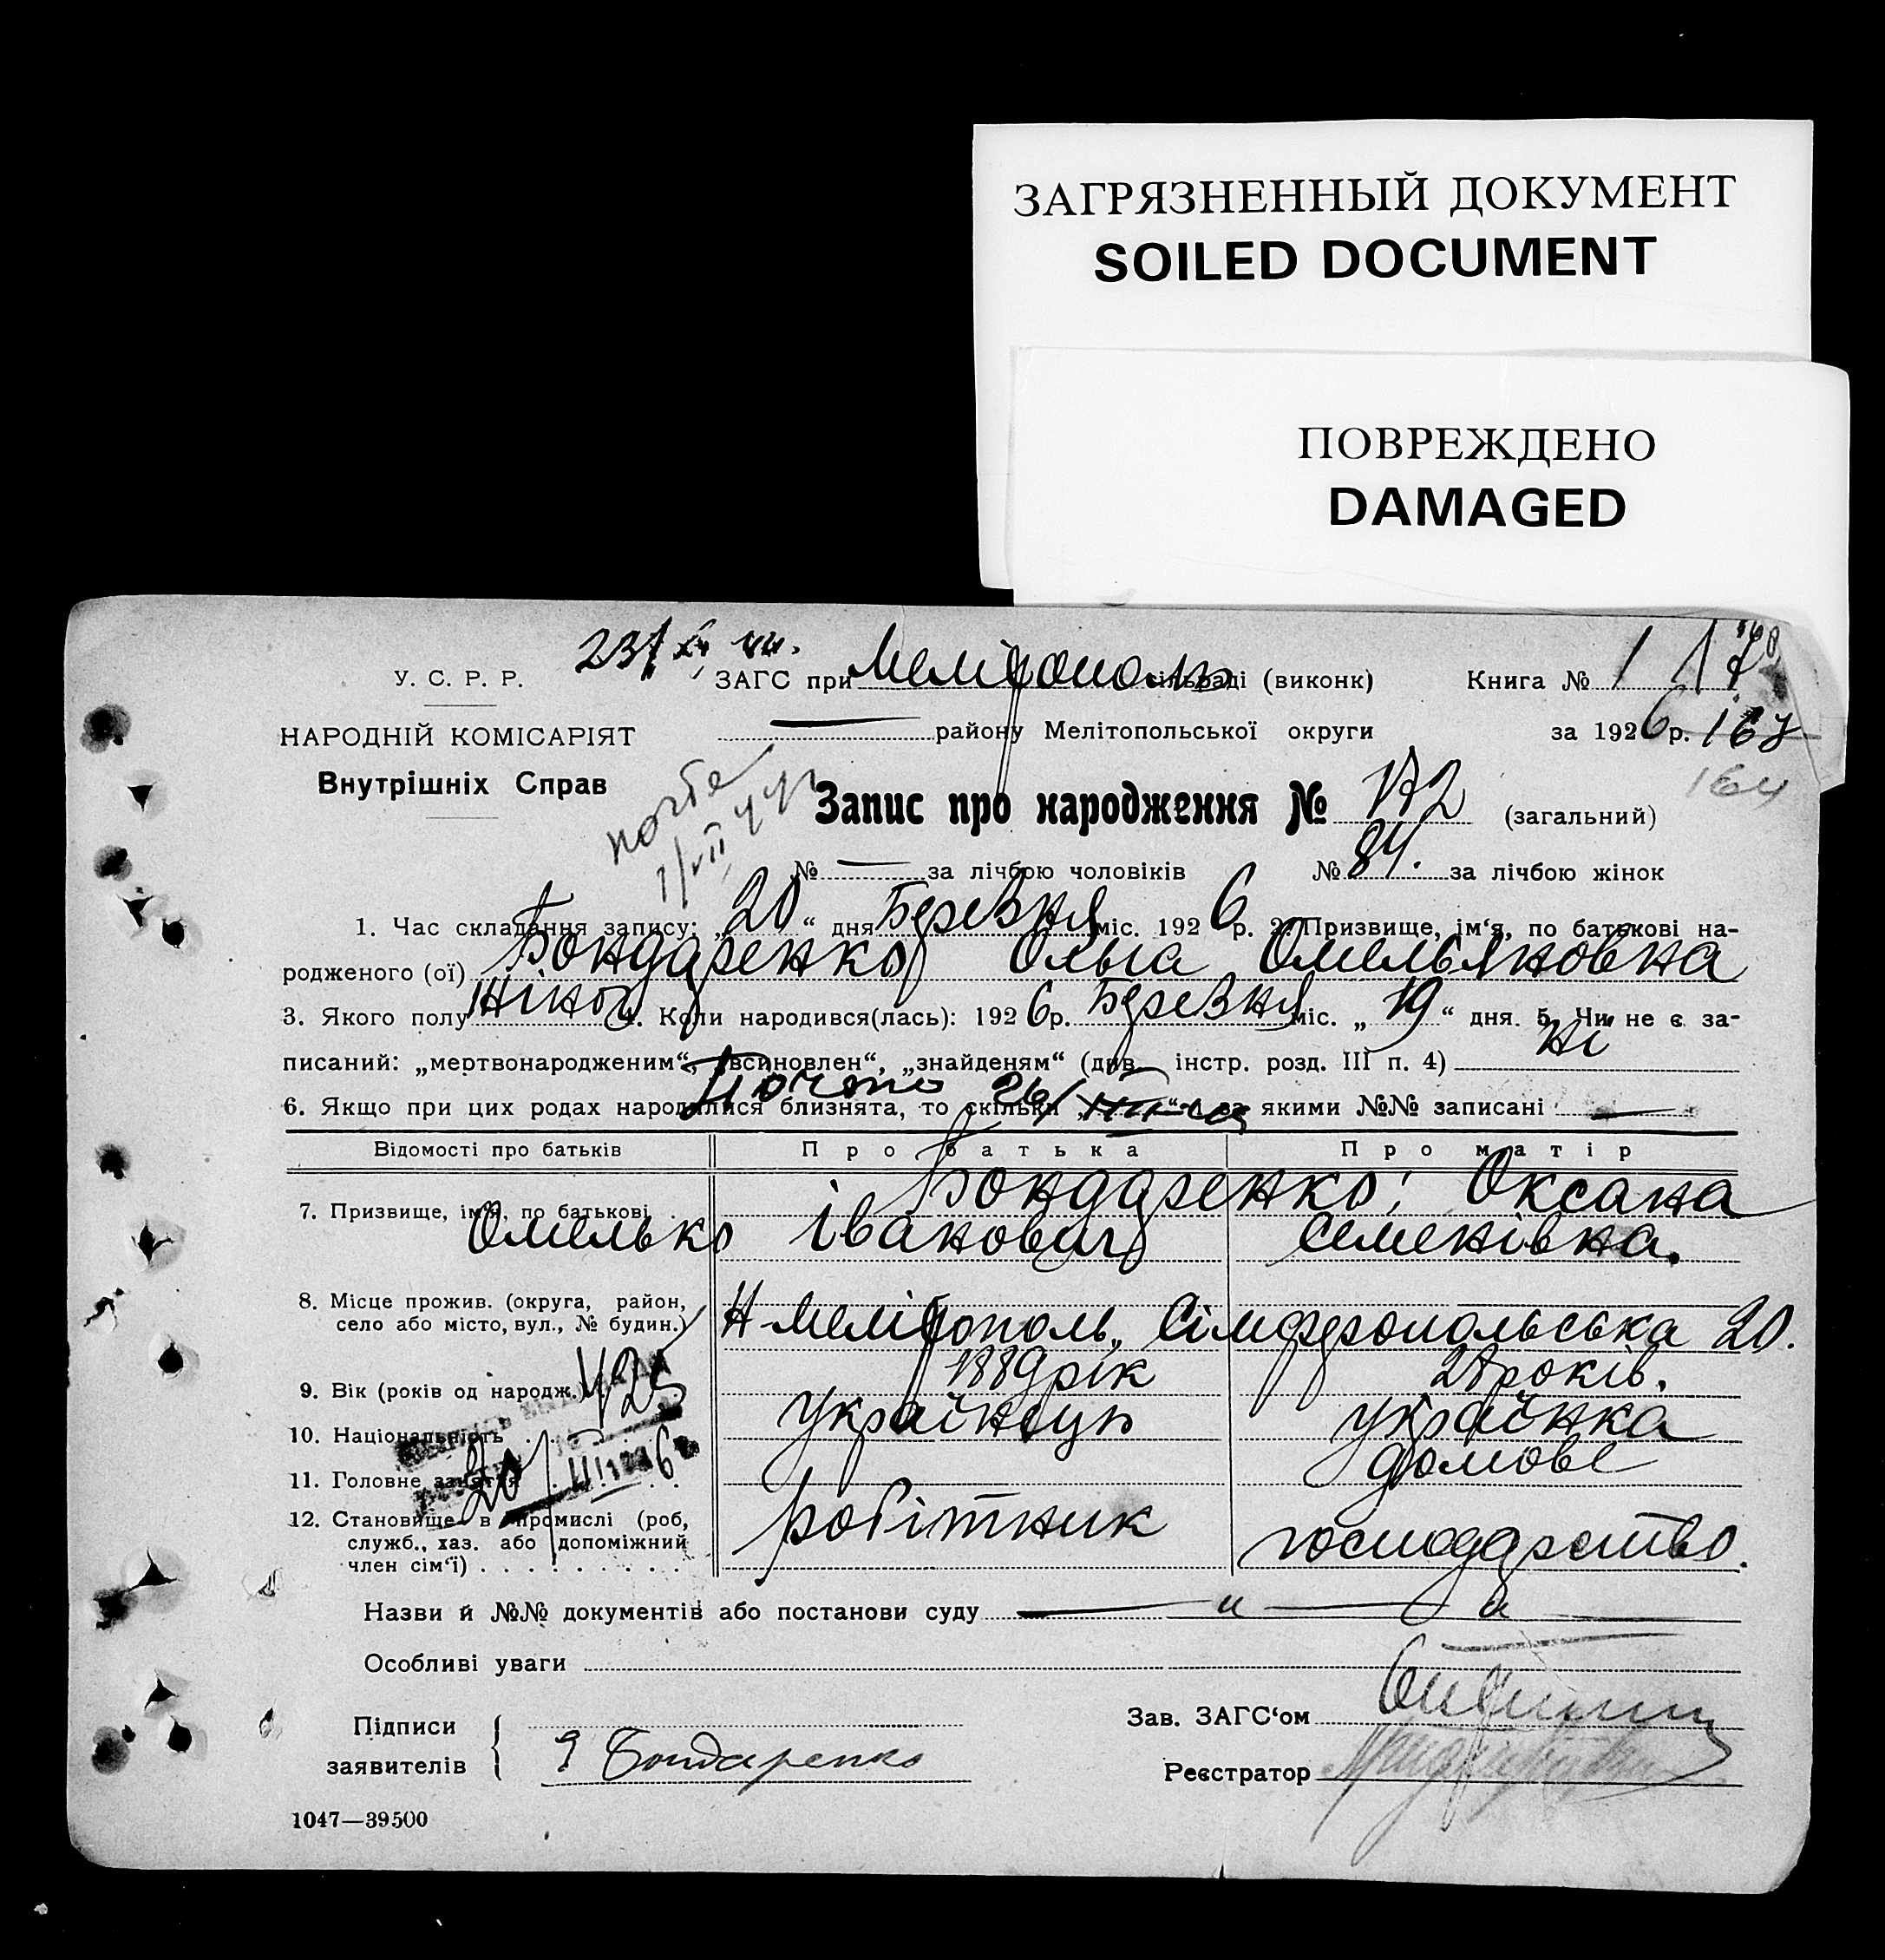 ЗАГРЯЗНЕННЫЙ ДОКУМЕНТ
SOILED DOCUMENT
ПОВРЕЖДЕНО
DAMAGED
У. С. Р. Р. ЗАГС при Мелітополь сільраді (виконк) Книга № 1
НАРОДНІЙ КОМІСАРІЯТ — району Мелітопольської округи за 1926 р. 167
Внутрішніх Справ
164
почта
Запис про народження № 172 (загальний)
№ — за лічбою чоловіків № 84. за лічбою жінок
1. Час складання запису: „20“ дня Березня міс. 1926 р. 2. Призвище, ім‘я, по батькові на-
родженого (ої) Бондаренко Ольга Омельяновна
3. Якого полу Жіноч 4. Коли народився(лась): 1926 р. Березня міс. „19“ дня. 5. Чи не є за-
писаний: „мертвонародженим“, „всиновлен“, „знайденям“ (див. інстр. розд. III п. 4) Ні
Почто 26/
6. Якщо при цих родах народилися близнята, то скільки „ “ і за якими №№ записані —
Відомості про батьків Про батька Про матір
7. Призвище, ім‘я, по батькові . Бондаренко; Оксана
Омелько Іванович Семенівна.
8. Місце прожив. (округа, район,
село або місто, вул., № будин.) Н-Мелітополь, Сімферопольська 20.
9. Вік (років од народж.) 1889 рік 28 років.
10. Національність українець українка
11. Головне заняття домове
12. Становище в промислі (роб, робітник господарство.
служб., хаз. або допоміжний
член сім‘ї)
Назви й №№ документів або постанови суду — „ — „ —
Особливі уваги
Підписи Зав. ЗАГС‘ом
заявителів Бондаренко Реєстратор
1047—39500